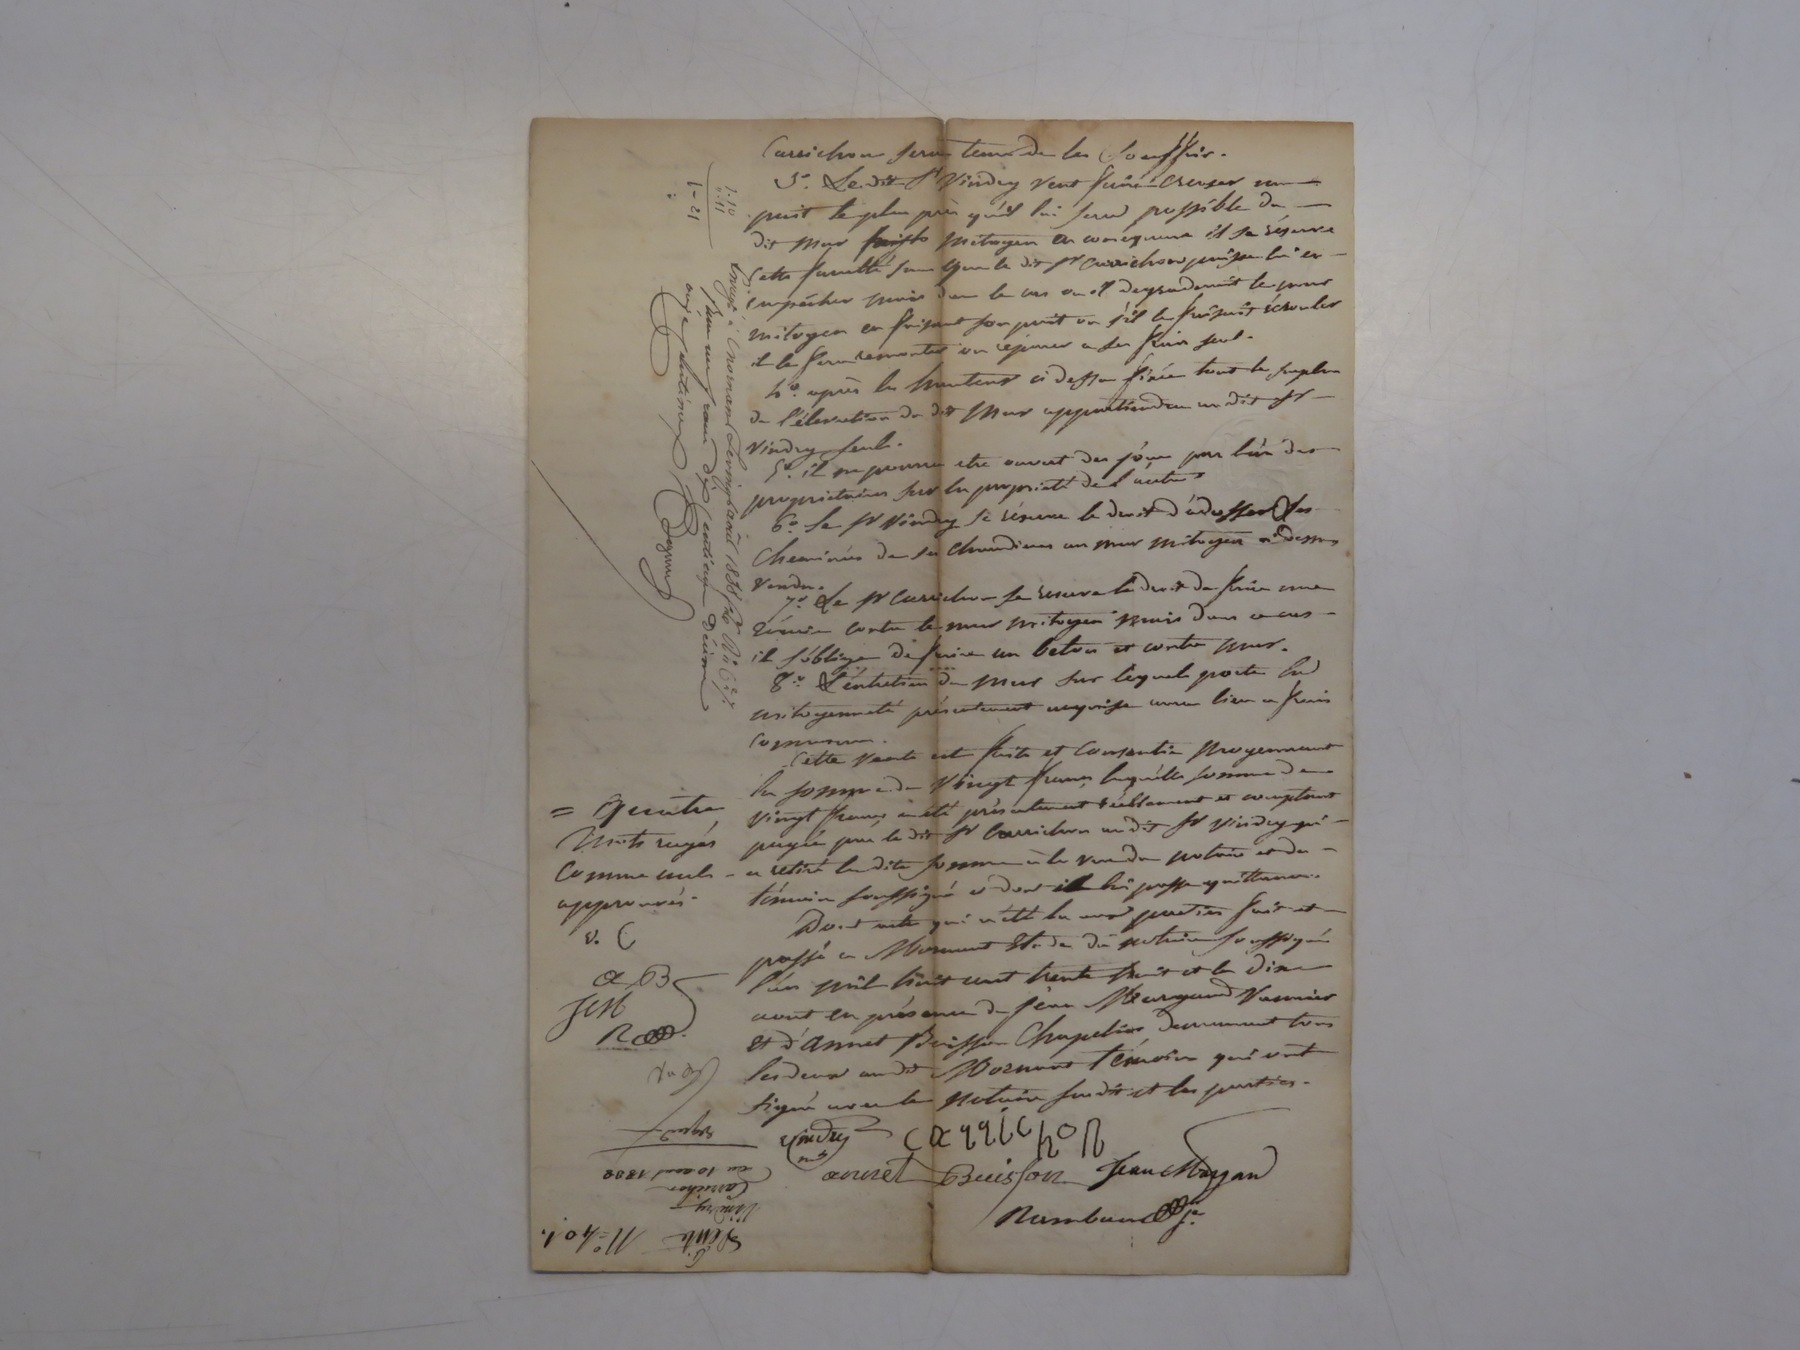 Carrichon sera tenu de les souffrir.
3.º Le dit Sr Vindry veut faire creuser un
puit le plus près qu'il lui sera possible du
dit mur mitoyen en consequence il se réserve
cette faculté sans que le dit Sr Carrichon puisse lui en
empêcher mais dans le cas ou il degraderait le mur
mitoyen en faisant son puit ou s'il le faisait écrouler
il le fera remonter ou réparer a ses frais seul.
4.º après la hauteur ci dessus fixée tout le surplus
de l'élevation du dit mur appartiendra au dit Sr
Vindry seul.
5.º il ne pourra etre ouvert des jours par l'un des
proprietaires sur la proprieté de l'autre
6.º Le Sr Vindry se réserve le droit d'adosser les
cheminées de ses chaudieres au mur mitoyen ci dessus
vendu.
7.º Le Sr Carrichon se reserve le droit de faire une
écurie contre le mur mitoyen mais dans ce cas
il s'oblige de faire un beton et contre mur.
8.º L'entretien du mur sur lequel porte la
mitoyenneté présentement acquise aura lieu a frais
communs.
Cette vente est faite et consentie moyennant
la somme de vingt francs laquelle somme de
vingt francs a été présentement réellement et comptant
payée par le dit Sr Carrichon au dit Sr Vindry qui
a retiré la dite somme à la vue du notaire et des
témoins soussignés et dont il lui passe quittance.
Dont acte qui a été lu aux parties fait et
passé a Mornant Etude du notaire soussigné
l'an mil huit cent trente huit et le dix
aout en présence de Jean Margand
et d'Annet Buisson Chapelier demeurant tous
les deux au dit Mornant témoins qui ont
signé avec le notaire susdit et les parties.
Vindry
annet Buisson Jean Margan
Rambaud Jne
= Quatre
mots rayés
comme nuls
approuvés.
v. C
a. B
JM
R
1.10
11
1-21
Enregé à Mornant le vingt aout 1838
Reçu un franc dix centimes décime
onze centimes
Nº 401.
Vente
Vindry
Carrichon
du 10 aout 1838